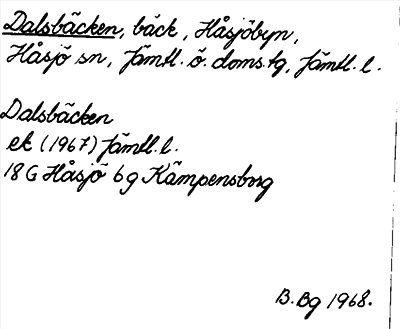 Dalsbäcken, bäck, Håsjöbyn,
Håsjö sn, Jämtl. ö. doms.tg, Jämtl. l.
Dalsbäcken
ek (1967) Jämtl. l.
18 G Håsjö 6 g Kämpensborg
B. Bg 1968.